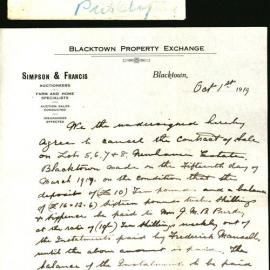 BLACKTOWN PROPERTY EXCHANGE
SIMPSON & FRANCIS
AUCTIONEERS
FARM AND HOME
SPECIALISTS
AUCTION SALES
CONDUCTED
INSURANCES
EFFECTED
Blacktown,
Oct 1st 1919
We the undersigned hereby
agree to cancel the Contract of Sale
on Lots 5, 6, 7 & 8, Estate,
Blacktown made on the fifteenth day of
March 1919. on the condition that the
deposits of (£10) Ten pounds and a balance
of £16-12-6) sixteen pounds twelve shillings
& sixpence be paid to Mrs J. M. B.
at the rate of (10/-) Ten Shillings weekly out of
the Instalments paid by Frederick
until the above amount is paid. The
balance of the Instalment to be paid